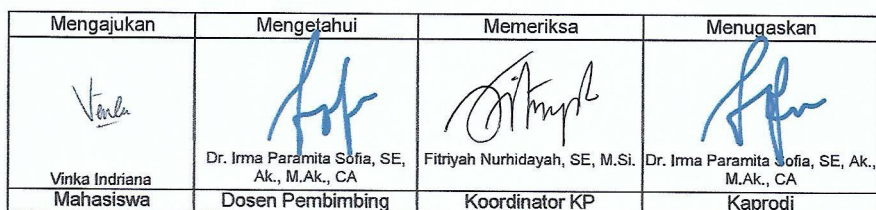 Mengajukan Mengetahui Memeriksa Menugaskan
Vinka Indriana
Dr. Irma Paramita Sofia, SE,
Ak., M.Ak., CA
Fitriyah Nurhidayah, SE, M.Si.
Dr. Irma Paramita Sofia, SE, Ak.,
M.Ak., CA
Mahasiswa Dosen Pembimbing Koordinator KP Kaprodi